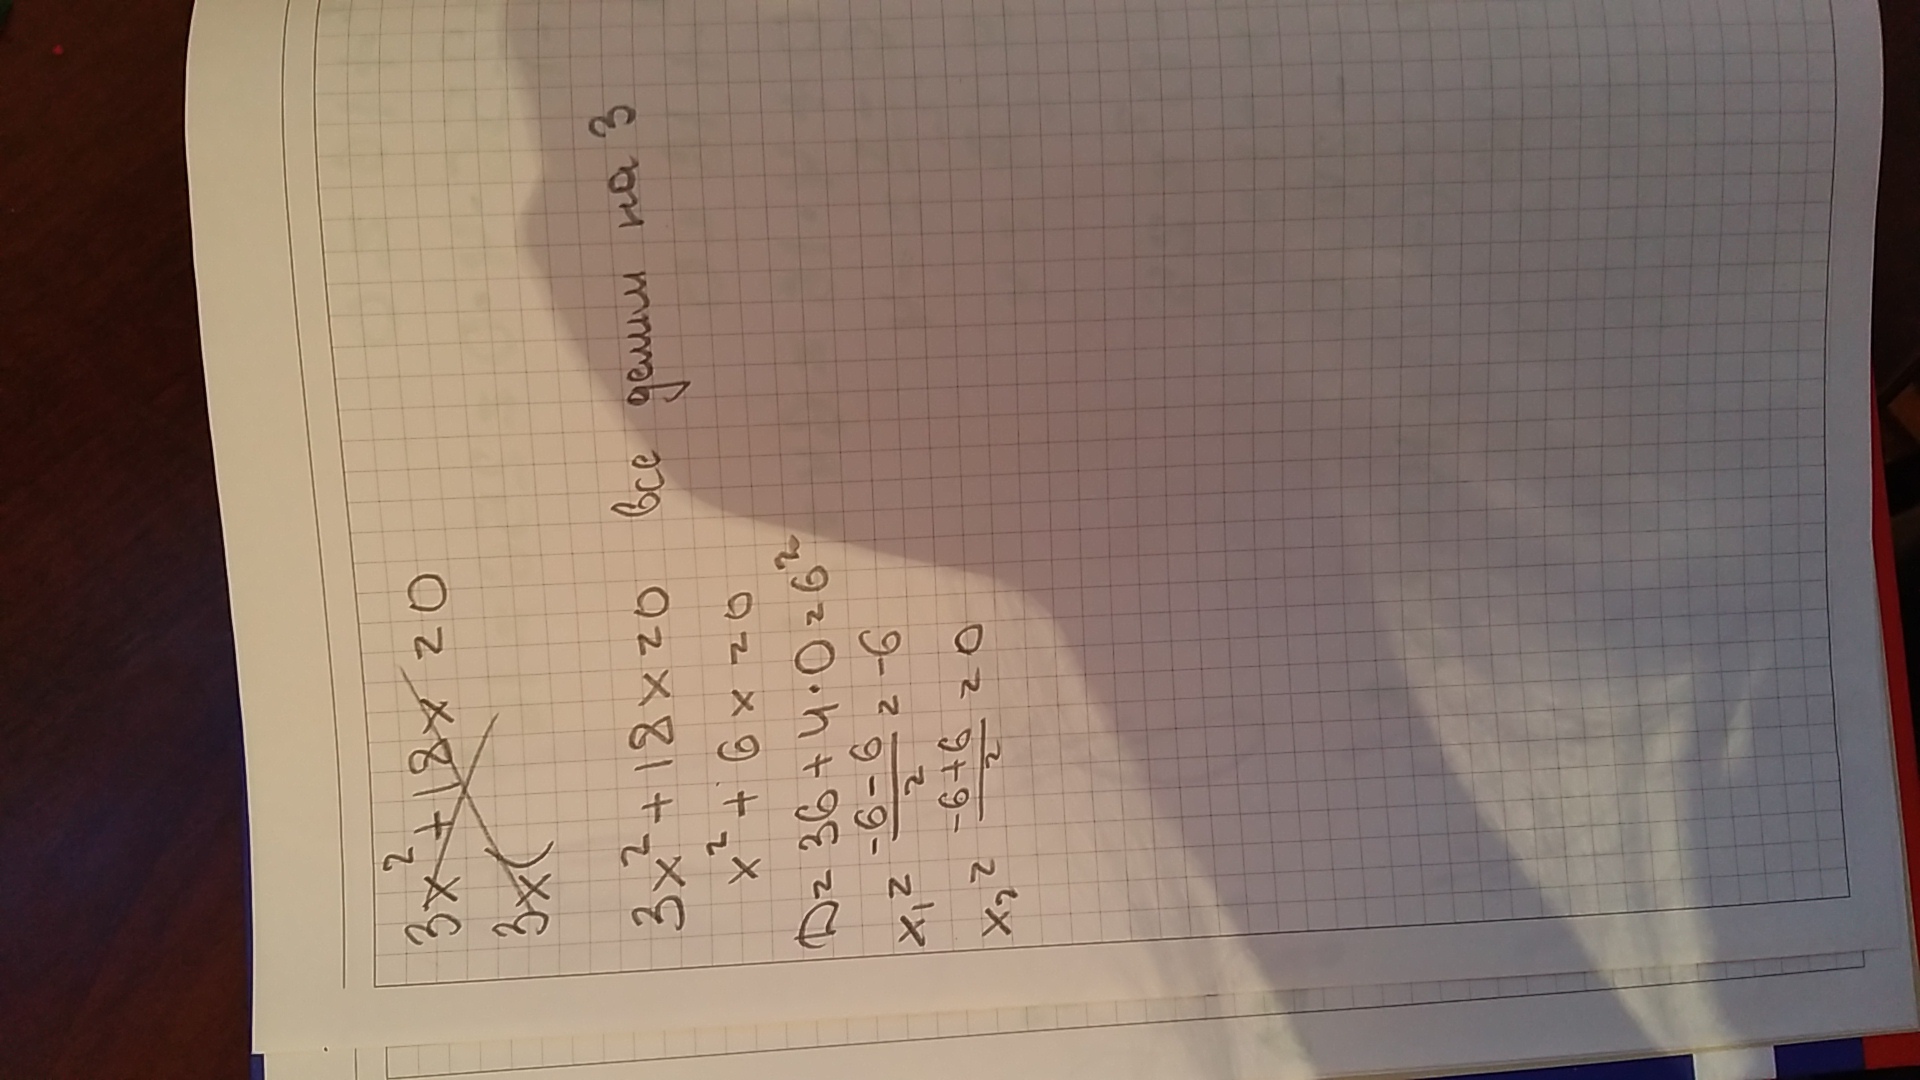 3x² + 18x = 0
3x(
3x² + 18x = 0 все делим на 3
x² + 6x = 0
D = 36 + 4·0 = 6²
x₁ = -6-6/2 = -6
x₂ = -6+6/2 = 0